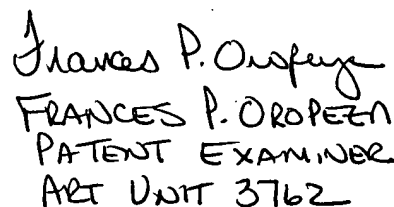 Frances P. Oropeza
FRANCES P. OROPEZA
PATENT EXAMINER
ART UNIT 3762